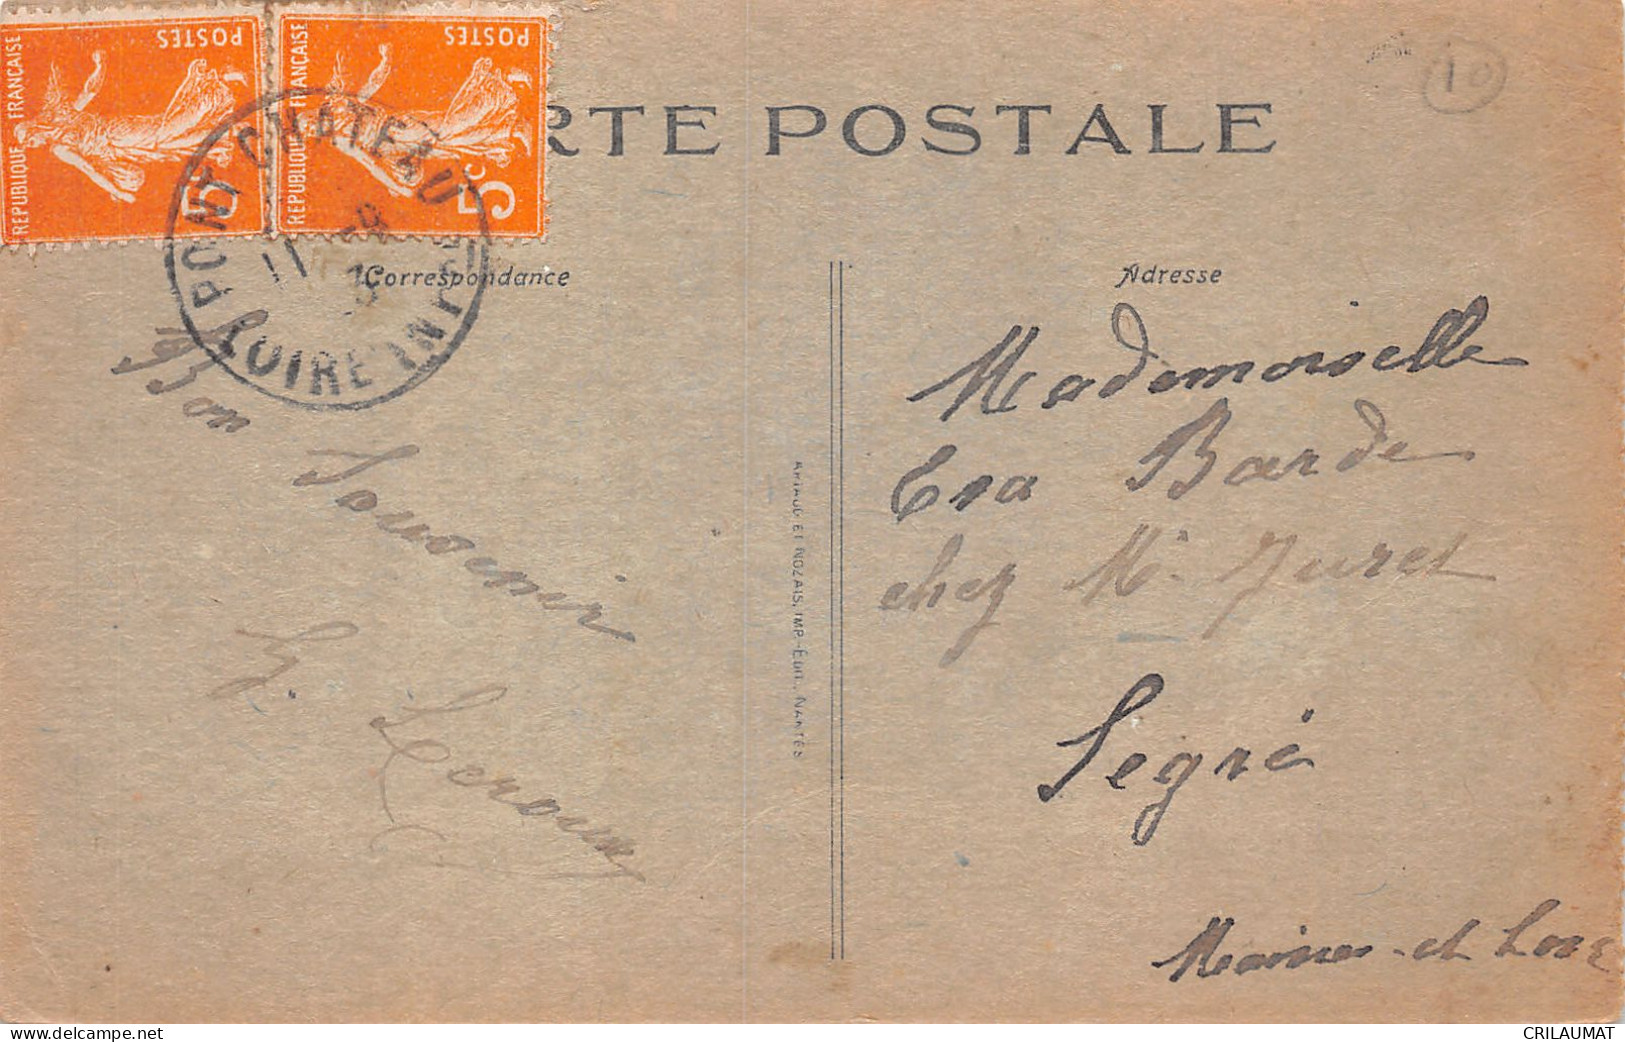 POSTES
REPUBLIQUE FRANÇAISE
5c
POSTES
REPUBLIQUE FRANÇAISE
5c
PONT CHATEAU
LOIRE INF
11 -8
10
RTE POSTALE
Correspondance
Adresse
Bon
Souvenir
Leroux
Mademoiselle
Eva Barde
chez Mr Juret
Segré
Maine-et Loire
ARTAUD ET NOZAIS, IMP.-ÉDIT., NANTES
CRILAUMAT